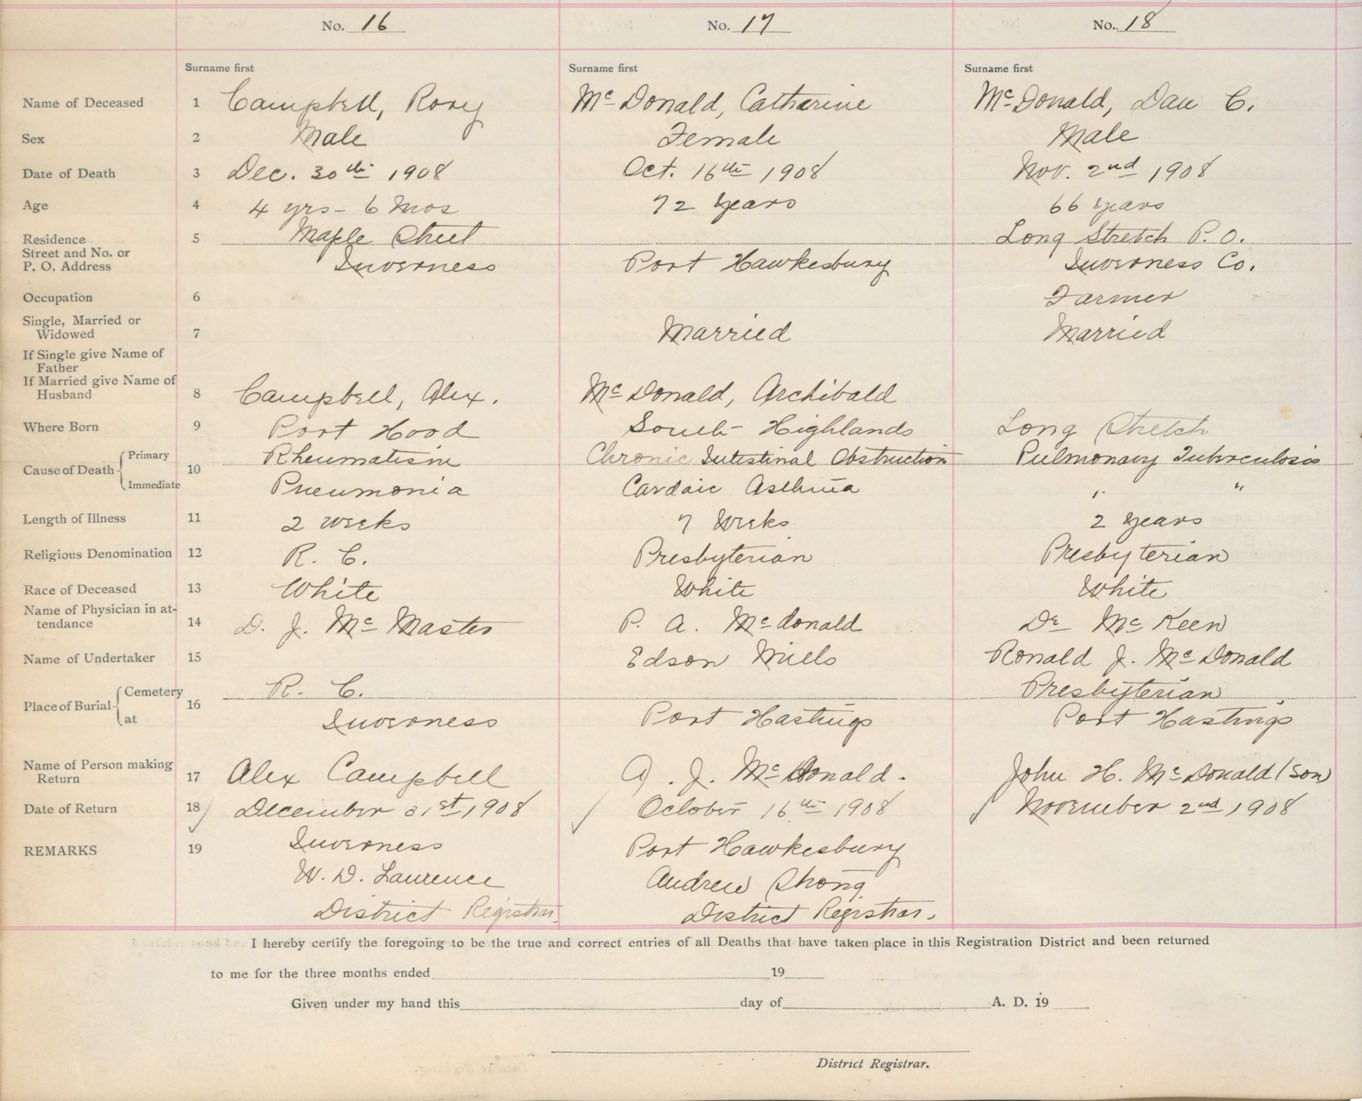 No. 16 No. 17 No. 18
Surname first Surname first Surname first
Name of Deceased 1 Campbell, Rory McDonald, Catherine McDonald, Dan C.
Sex 2 Male Female Male
Date of Death 3 Dec. 30th 1908 Oct. 16th 1908 Nov. 2nd 1908
Age 4 4 yrs - 6 Mos 72 Years 66 years
Residence 5 Maple Street Long Stretch P.O.
Street and No. or
P. O. Address Inverness Port Hawkesbury Inverness Co.
Occupation 6 Farmer
Single, Married or
Widowed 7 Married Married
If Single give Name of
Father
If Married give Name of
Husband 8 Campbell, Alex. McDonald, Archibald
Where Born 9 Port Hood South Highlands Long Stretch
Cause of Death Primary 10 Rheumatism Chronic Intestinal Obstruction Pulmonary Tuberculosis
Immediate Pneumonia Cardaic Asthma " "
Length of Illness 11 2 weeks 7 Weeks 2 years
Religious Denomination 12 R. C. Presbyterian Presbyterian
Race of Deceased 13 White White White
Name of Physician in at-
tendance 14 D. J. McMaster P. A. Mcdonald Dr McKeen
Name of Undertaker 15 Edson Mills Ronald J. McDonald
Place of Burial Cemetery 16 R. C. Presbyterian
at Inverness Port Hastings Port Hastings
Name of Person making
Return 17 Alex Campbell A. J. McDonald. John H. McDonald (son)
Date of Return 18 December 31st, 1908 October 16th 1908 November 2nd, 1908
REMARKS 19 Inverness Port Hawkesbury
W. D. Laurence Andrew Strong
District Registrar. District Registrar.
I hereby certify the foregoing to be the true and correct entries of all Deaths that have taken place in this Registration District and been returned
to me for the three months ended 19
Given under my hand this day of A. D. 19
District Registrar.